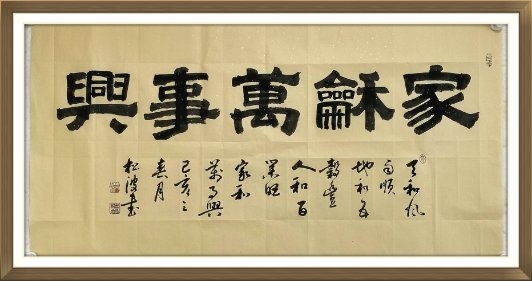 家龢萬事興
天和风
雨顺
地和五
穀豐
人和百
業旺
家和
萬事興
己亥之
春月
松書